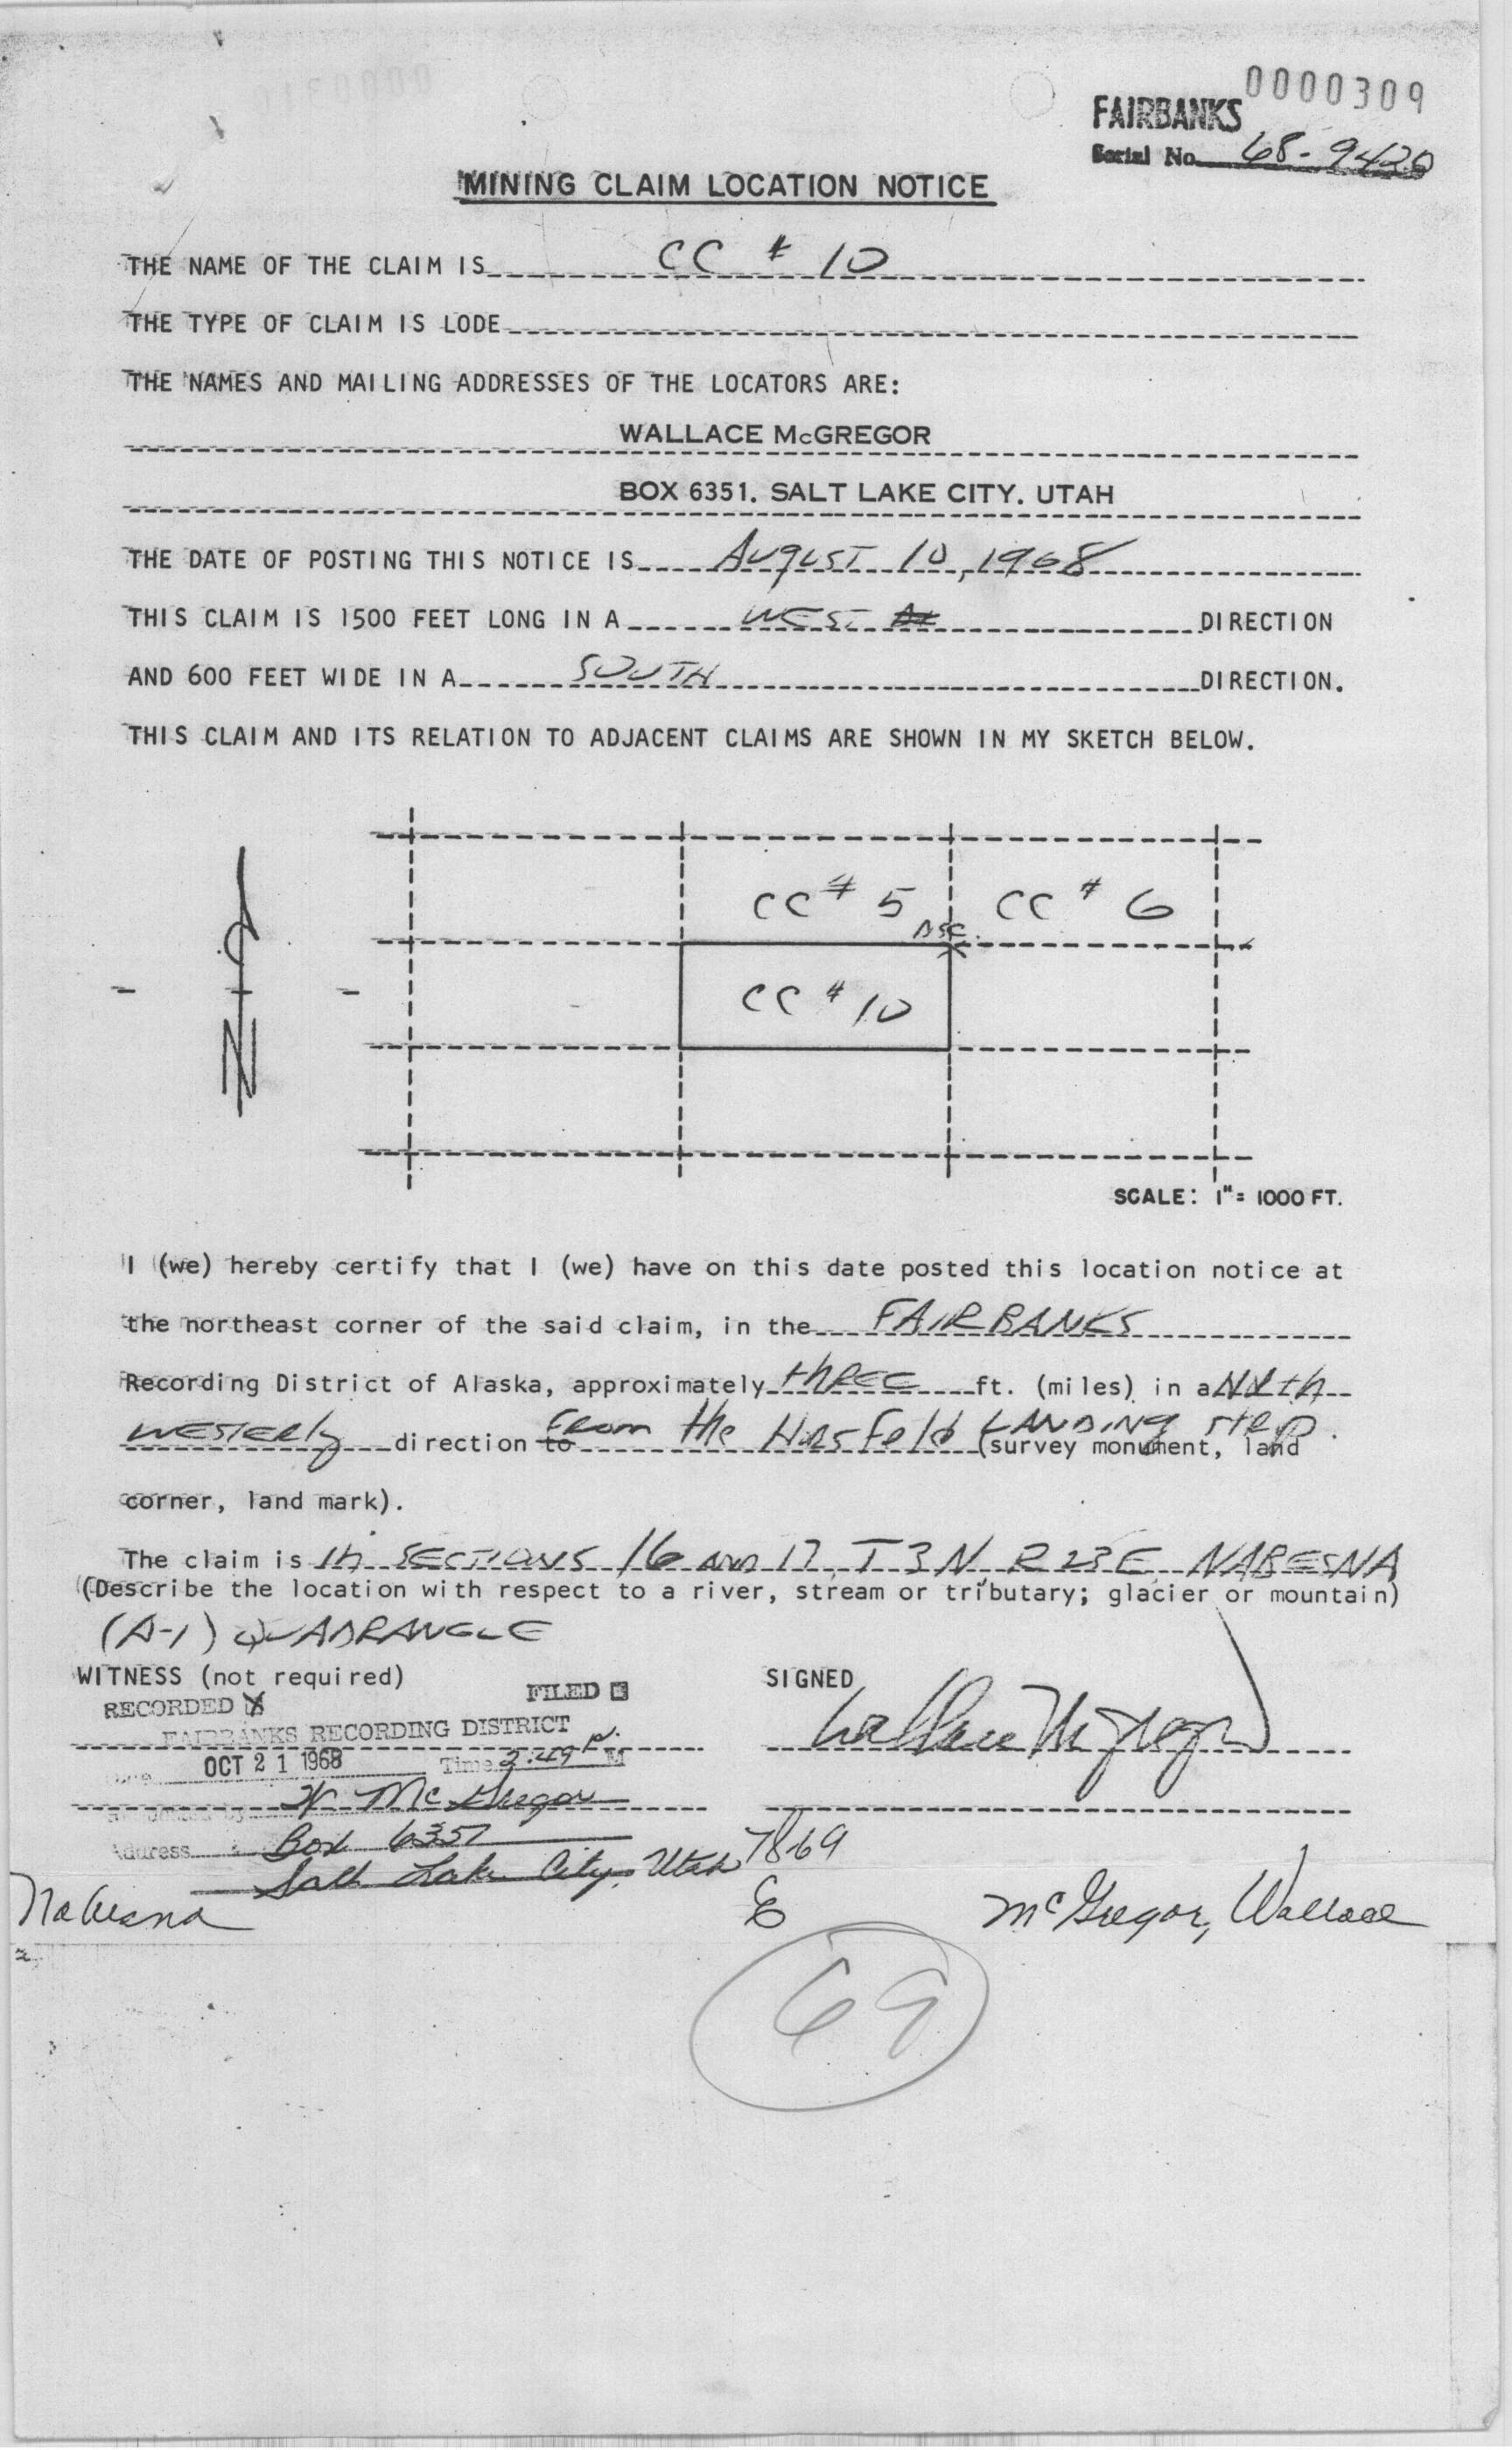 0000309
FAIRBANKS
Serial No. 68-9420
MINING CLAIM LOCATION NOTICE
THE NAME OF THE CLAIM IS CC # 10
THE TYPE OF CLAIM IS LODE
THE NAMES AND MAILING ADDRESSES OF THE LOCATORS ARE:
WALLACE McGREGOR
BOX 6351, SALT LAKE CITY, UTAH
THE DATE OF POSTING THIS NOTICE IS AUGUST 10, 1968
THIS CLAIM IS 1500 FEET LONG IN A WEST DIRECTION
AND 600 FEET WIDE IN A SOUTH DIRECTION.
THIS CLAIM AND ITS RELATION TO ADJACENT CLAIMS ARE SHOWN IN MY SKETCH BELOW.
CC # 5 CC # 6
DSC.
CC # 10
N
SCALE: 1" = 1000 FT.
I (we) hereby certify that I (we) have on this date posted this location notice at
the northeast corner of the said claim, in the FAIRBANKS
Recording District of Alaska, approximately THREE ft. (miles) in a North
westerly direction to From the Horsfeld LANDING STRIP.
(survey monument, land
corner, land mark).
The claim is in SECTIONS 16 AND 17, T 3 N, R 23 E, NABESNA
(Describe the location with respect to a river, stream or tributary; glacier or mountain)
(A-1) QUADRANGLE
WITNESS (not required) SIGNED
RECORDED FILED
FAIRBANKS RECORDING DISTRICT
Wallace McGregor
Date OCT 21 1968 Time 2:49 P. M
W McGregor
Address Box 6351
Salt Lake City, Utah 7869
Nabesna E McGregor, Wallace
69